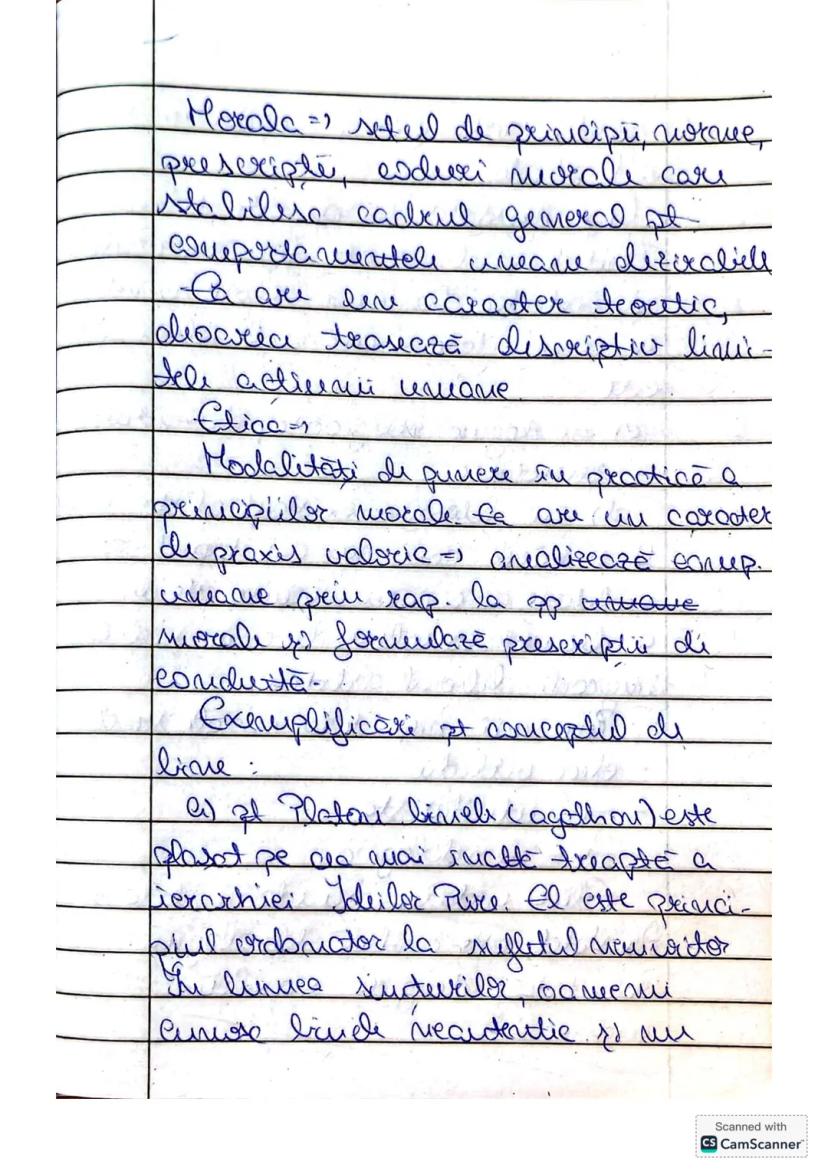 Morala => setul de principii, norme,
prescripții, coduri morale care
stabilesc cadrul general pt
comportamentele umane dezirabile
Ea are un caracter teoretic,
deoarece trasează descriptiv limi-
tele acțiunii umane.
Etica =>
Modalități de punere în practică a
principiilor morale. Ea are un caracter
de praxis valoric => analizează comp.
umane prin rap. la pp umane
morale și formulază prescripții de
conduită.
Exemplificări pt conceptul de
bine :
a) pt Platon binele (agathon) este
plasat pe cea mai înaltă treaptă a
ierarhiei Ideilor Pure. El este princi-
piul ordonator la sufletul nemuritor
În lumea simțurilor, oamenii
cunosc binele neautentic și nu
Scanned with
CS CamScanner